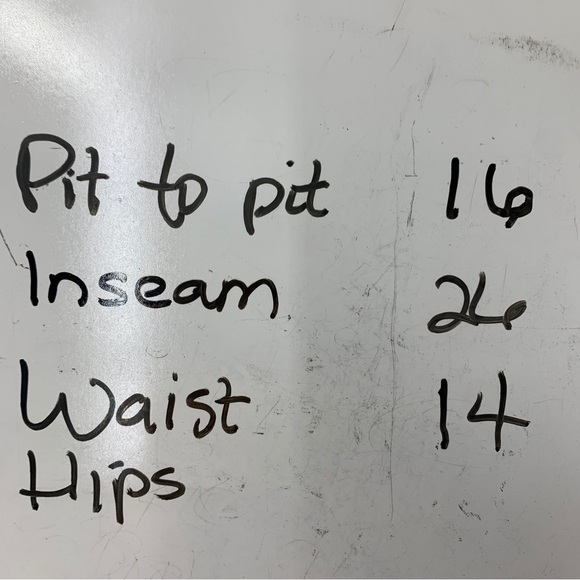 Pit to pit 16
Inseam 26
Waist 14
Hips